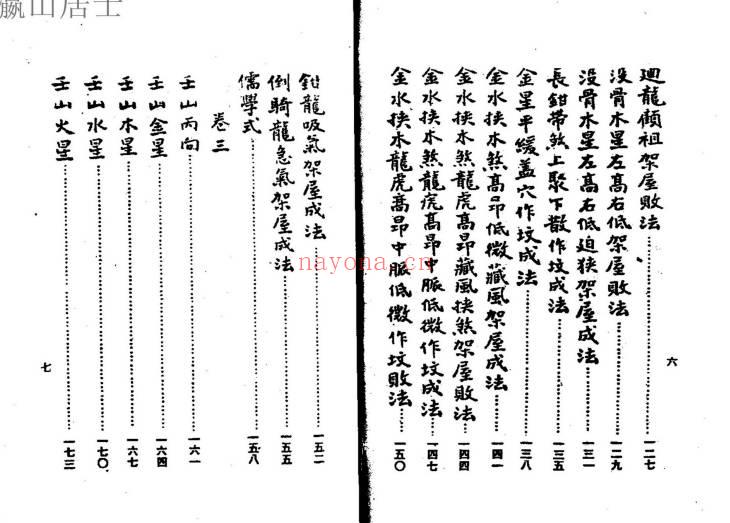 瀛山居士
迴龍顧祖架屋敗法……一二七
没骨水星左髙右低架屋敗法……一二九
没骨水星左髙右低迫狹架屋成法……一三一
長鉗帶煞上聚下散作坟成法……一三五
金星平緩蓋穴作坟成法……一三八
金水挟水煞髙昂低微藏風架屋成法……一四一
金水挟水煞龍虎髙昂藏風挟煞架屋敗法……一四四
金水挟水煞龍虎髙昂中脈低微作坟成法……一四七
金水挟水龍虎髙昂中脈低微作坟敗法……一五〇
六
鉗龍吸氣架屋成法……一五二
倒騎龍急氣架屋成法……一五五
儒學式……一五八
卷三
壬山丙向……一六一
壬山金星……一六四
壬山木星……一六七
壬山水星……一七〇
壬山火星……一七三
七
nayona.cn